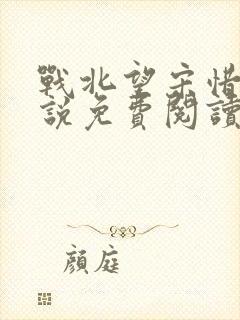 戰北望宋惜
說免費閱讀
顏庭